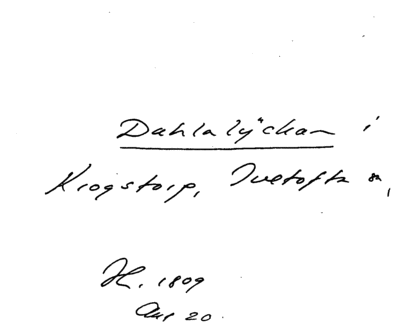 Dahlalyckan i
Krogstorp, Ivetofta sn,
H. 1809
Aug 20.